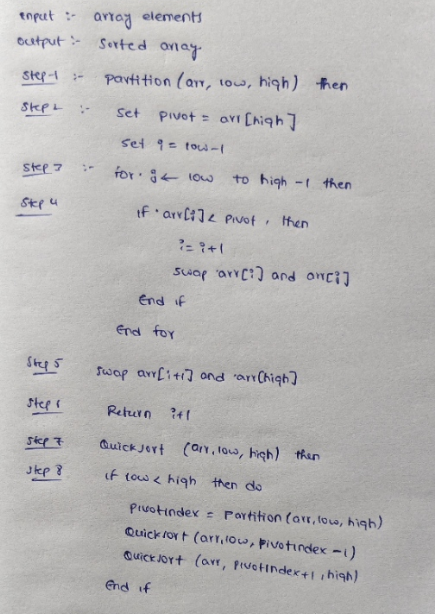 input :- array elements
output :- Sorted array
Step-1 :- partition (arr, low, high) then
Step 2 :- Set pivot = arr [high]
Set i = low-1
Step 3 :- for j ← low to high -1 then
Step 4 if arr[j] < pivot , then
i= i+1
swap arr[i] and arr[j]
End if
End for
Step 5 swap arr[i+1] and arr[high]
Step 6 Return i+1
Step 7 Quicksort (arr, low, high) then
Step 8 if low < high then do
PivotIndex = Partition (arr, low, high)
Quicksort (arr, low, PivotIndex -1)
Quicksort (arr, PivotIndex+1 , high)
End if